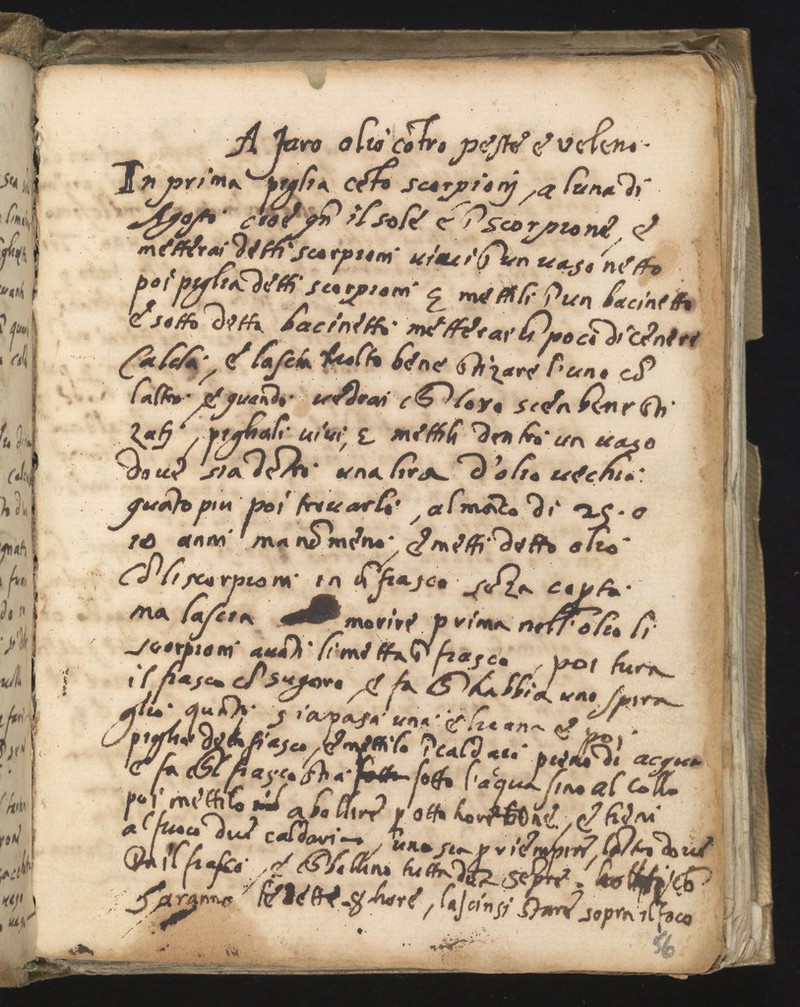 A Jaro olio cõtro peste é veleno.
In prima piglia cẽto scorpionj, a luna di
Agosto cioé qñ il solé é ĩ scorpioné, é
metterai detti scorpioni uiui ĩ un uaso netto
poi piglia detti scorpioni & mettili ĩ un bacinetto
é sotto detto bacinetto metterai ũ poco di cenere
Calda, é lascia molto bene stizare l'uno cõ
laltro, é quando uedrai ch loro sien bene sti
zatj, pigliali uiui, & mettili dentro un uaso
doué sia détro una lira d'olio uechio
quãto piu poi trouarlo, al mãco di 25. o
10 anni ma nõ méno, é metti detto olio
Cõ li scorpioni in ũ fiasco sẽza copta
ma lascia moriré prima nell'olio li
scorpioni auãti li metta ĩ fiasco, poi tura
il fiasco cõ sugaro, é fa ch habbia uno spira
glio quãdo
piglia detto fiasco, é mettilo ĩ caldaii pieno di acqua
é fa ch'l fiasco stia sotto l'acqua sino al collo
poi mettilo a bolliré p otto hore, é tieni
al fuoco dué caldari, uno sia p riémpiré, laltro doué
sta il fiasco, é ch bollino tutta dua sẽpre
saranno 8 hore, lascinsi staré sopra il foco
56